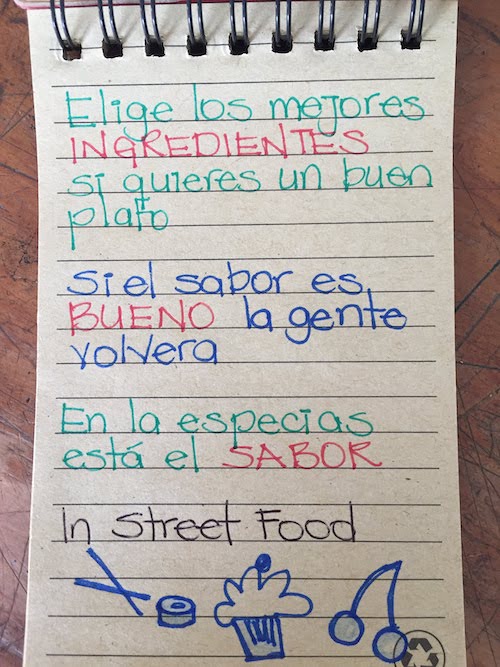 Elige los mejores
INGREDIENTES
si quieres un buen
plato
Si el sabor es
BUENO la gente
volvera
En la especias
está el SABOR
In Street Food